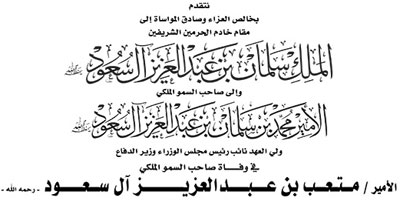 نتقدم
بخالص العزاء وصادق المواساة إلى
مقام خادم الحرمين الشريفين
الملك سلمان بن عبدالعزيز آل سعود
وإلى صاحب السمو الملكي
الأمير محمد بن سلمان بن عبدالعزيز آل سعود
ولي العهد نائب رئيس مجلس الوزراء وزير الدفاع
في وفاة صاحب السمو الملكي
الأمير / متعب بن عبدالعزيز آل سعود - رحمه الله -